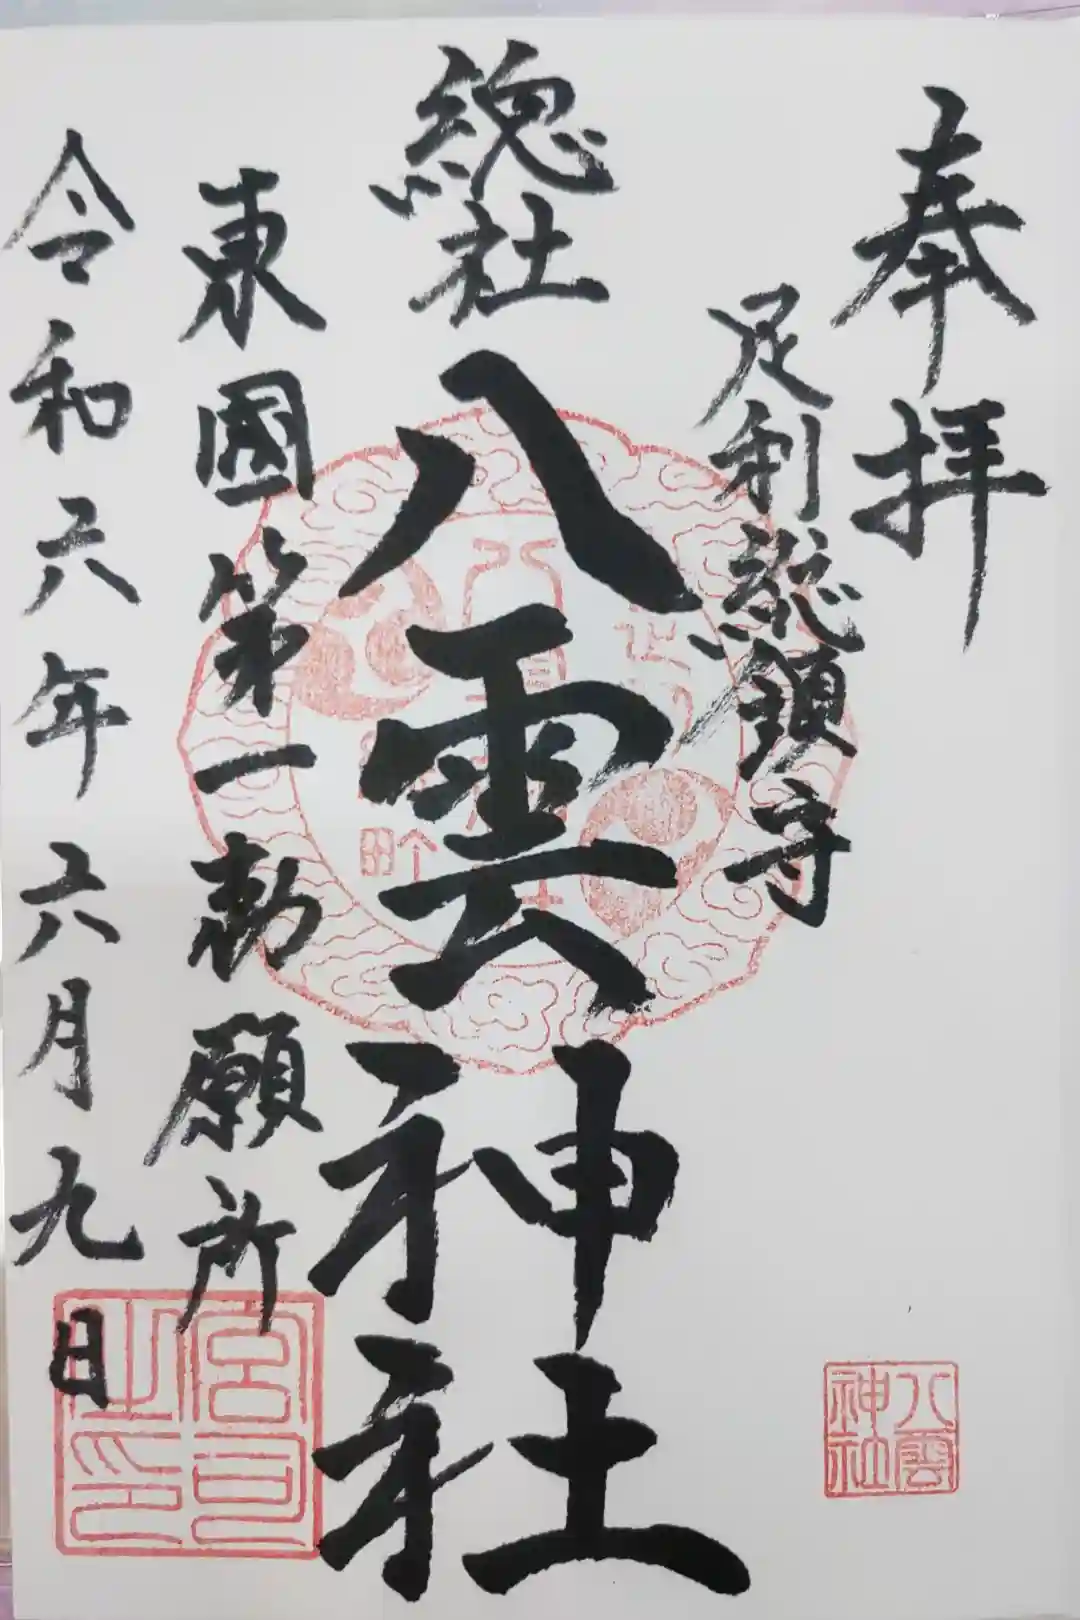 奉拝
足利総鎮守
総社
八雲神社
東國第一勅願所
令和六年六月九日
八雲
神社
宮司
之印